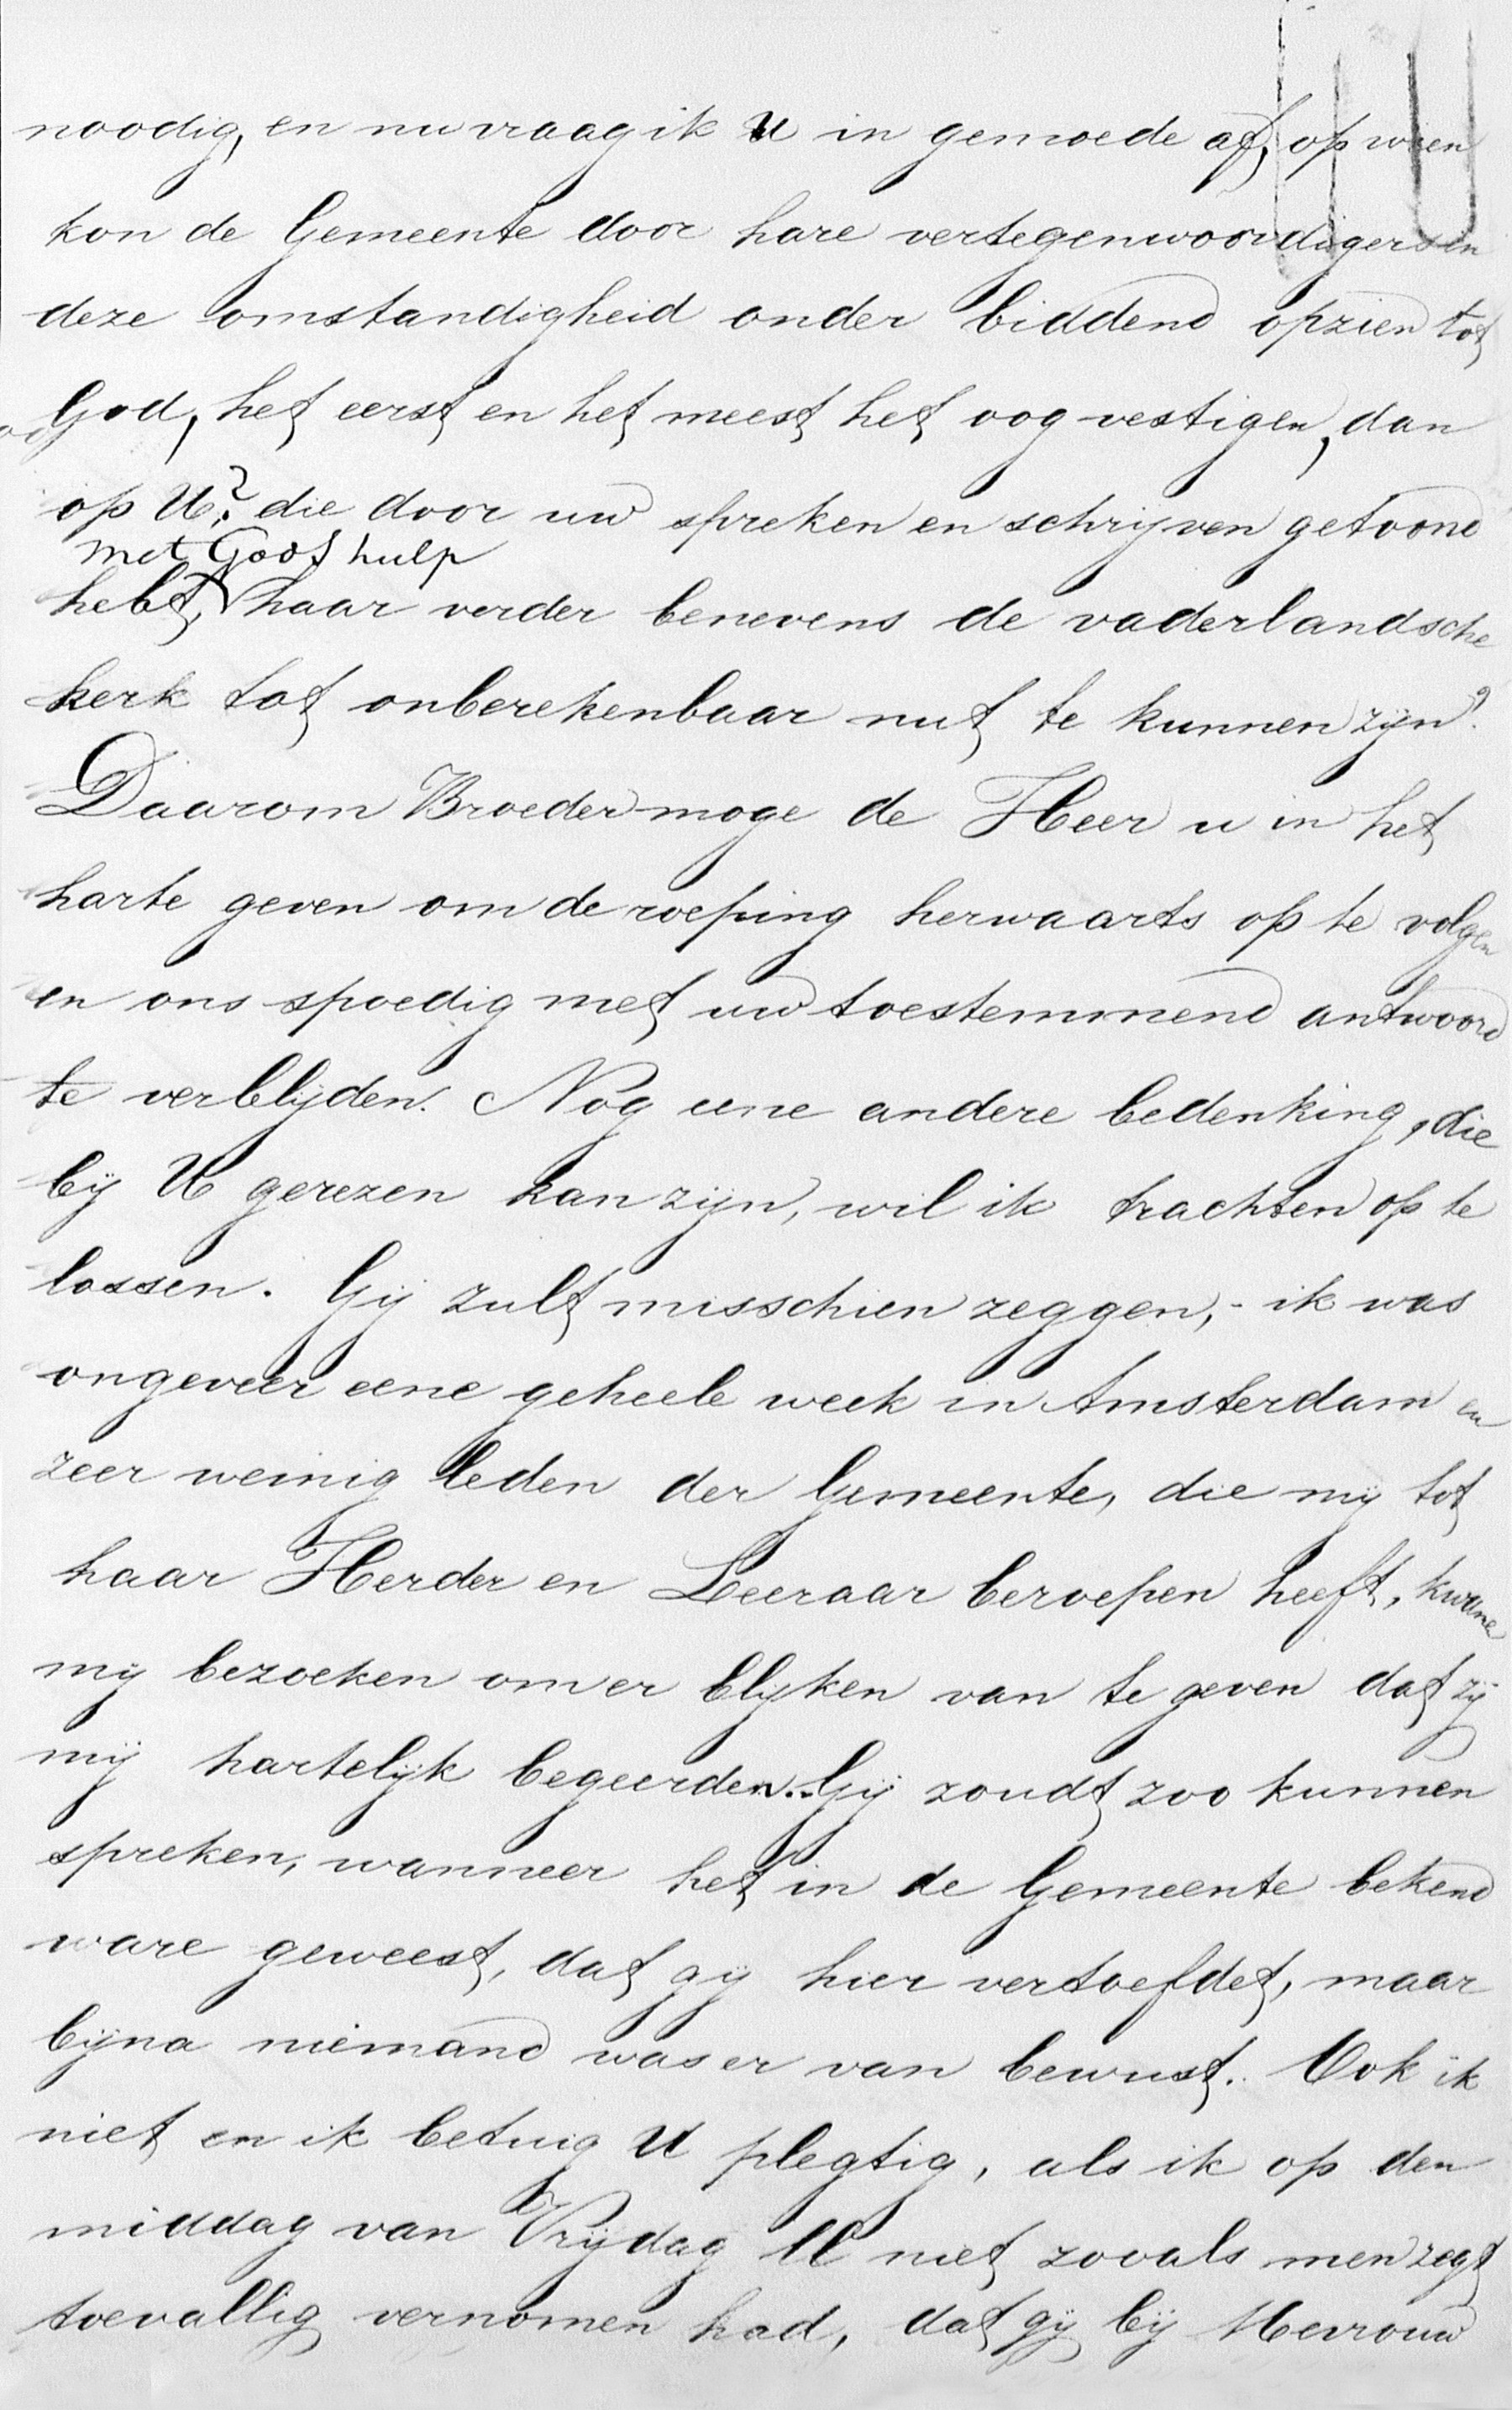 noodig, en nu vraag ik U in gemoede af, op wien
kon de Gemeente door hare vertegenwoordigers in
deze omstandigheid onder biddend opzien tot
God, het eerst en het meest het oog vestigen, dan
op U? die door uw spreken en schrijven getoond
met Gods hulp
hebt, haar verder benevens de vaderlandsche
kerk tot onberekenbaar nut te kunnen zijn?
Daarom Broeder moge de Heer u in het
harte geven om de roeping herwaarts op te volgen
en ons spoedig met uw toestemmend antwoord
te verblijden. Nog eene andere bedenking, die
bij U gerezen kan zijn, wil ik trachten op te
lossen. Gij zult misschien zeggen, - ik was
ongeveer eene geheele week in Amsterdam en
zeer weinig leden der Gemeente, die mij tot
haar Herder en Leeraar beroepen heeft, kwamen
mij bezoeken om er blijken van te geven dat zij
mij hartelijk begeerden. Gij zoudt zoo kunnen
spreken, wanneer het in de Gemeente bekend
ware geweest, dat gij hier vertoefdet, maar
bijna niemand was er van bewust. Ook ik
niet en ik betuig U plegtig, als ik op den
middag van Vrijdag ll niet zooals men zegt
toevallig vernomen had, dat gij bij Mevrouw